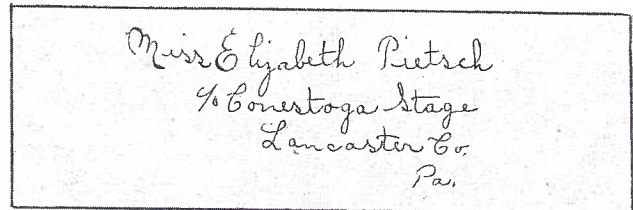 Miss Elizabeth Pietsch
c/o Conestoga Stage
Lancaster Co.
Pa.